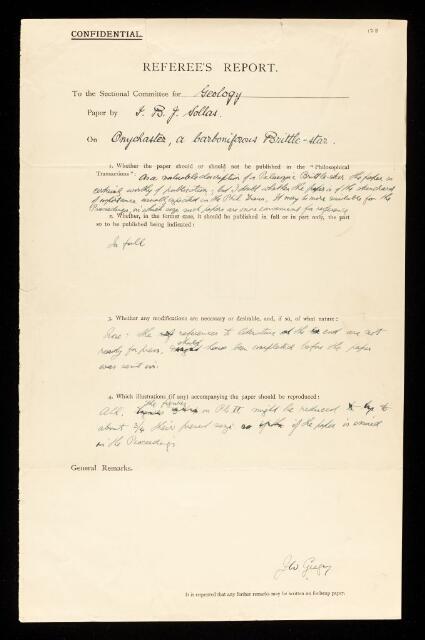 CONFIDENTIAL.
REFEREE'S REPORT.
To the Sectional Committee for Geology
Paper by I. B. J. Sollas.
On Onychaster, a Carboniferous Brittle-star.
1. Whether the paper should or should not be published in the "Philosophical
Transactions": As a valuable description of a Palaeozoic Brittle-star the paper is
certainly worthy of publication; but I doubt whether the paper is of the standard
of importance usually expected in the Phil Trans. It may be more suitable for the
Proceedings, in which size such papers are more convenient for reference
2. Whether, in the former case, it should be published in full or in part only, the part
so to be published being indicated:
In full
3. Whether any modifications are necessary or desirable, and, if so, of what nature:
None - the references to literature at the end are not
ready for press, should have been completed before the paper
was sent in.
4. Which illustrations (if any) accompanying the paper should be reproduced:
All. the figures on Pl II might be reduced to
about 3/4 their present size if the paper is issued
in the Proceedings
General Remarks.
J W Gregory
It is requested that any further remarks may be written on foolscap paper.